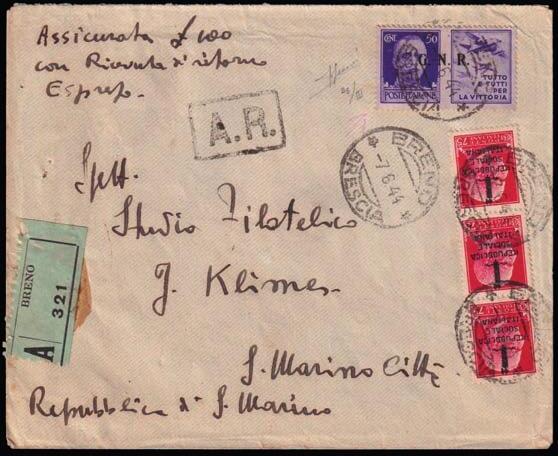 Assicurata £ 100
con Ricevuta di ritorno
Espresso.
CENT 50
POSTE ITALIANE
G. N. R.
TUTTO
E TUTTI
PER
LA VITTORIA
A.R.
BRENO
* -7.6.44 *
BRESCIA
Spett.
Studio Filatelico
J. Klimes
S. Marino Città
Repubblica di S. Marino
BRENO
A 321
REPUBBLICA
SOCIALE
ITALIANA
REPUBBLICA
SOCIALE
ITALIANA
REPUBBLICA
SOCIALE
ITALIANA